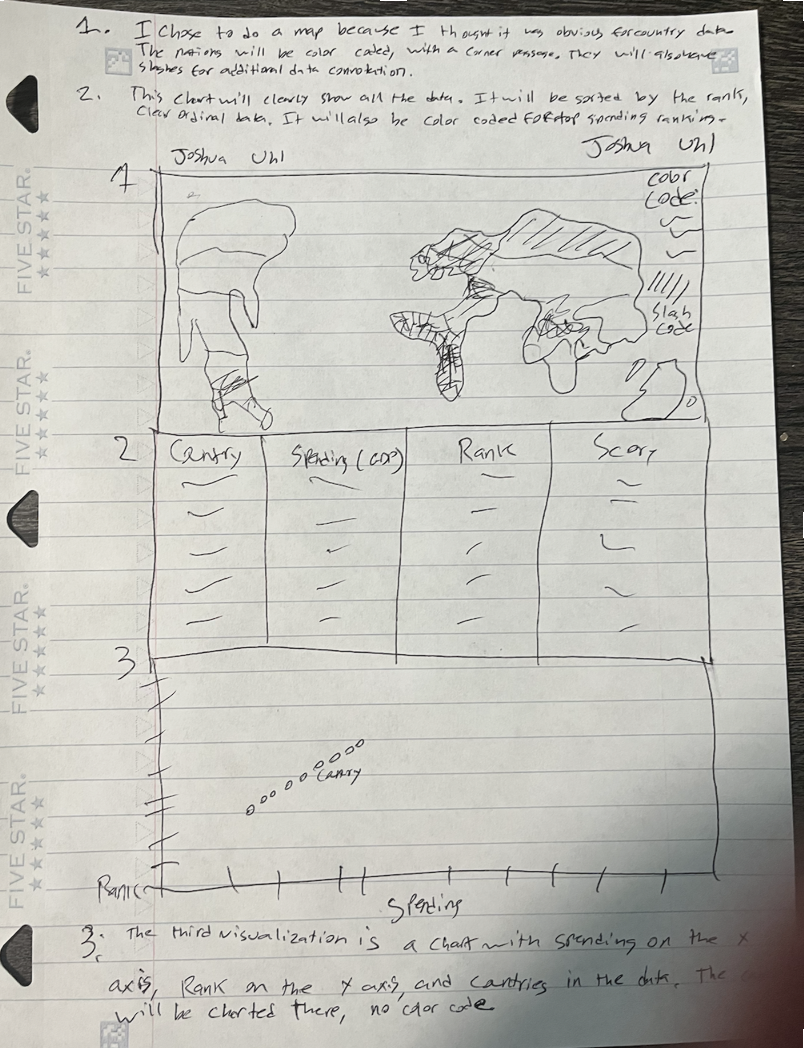 1. I chose to do a map because I thought it was obvious for country data.
The nations will be color coded, with a corner message. They will also have
slashes for additional data connotation.
2. This chart will clearly show all the data. It will be sorted by the rank,
clear ordinal data. It will also be color coded for top spending ranking.
Joshua Uhl
Joshua Uhl
1
color
code:
slash
code
2
Country
Spending (GDP)
Rank
Score
3
Country
Rank
Spending
3. The third visualization is a chart with spending on the x
axis, Rank on the Y axis, and countries in the data. The
will be charted there, no color code
FIVE STAR.
FIVE STAR.
FIVE STAR.
FIVE STAR.